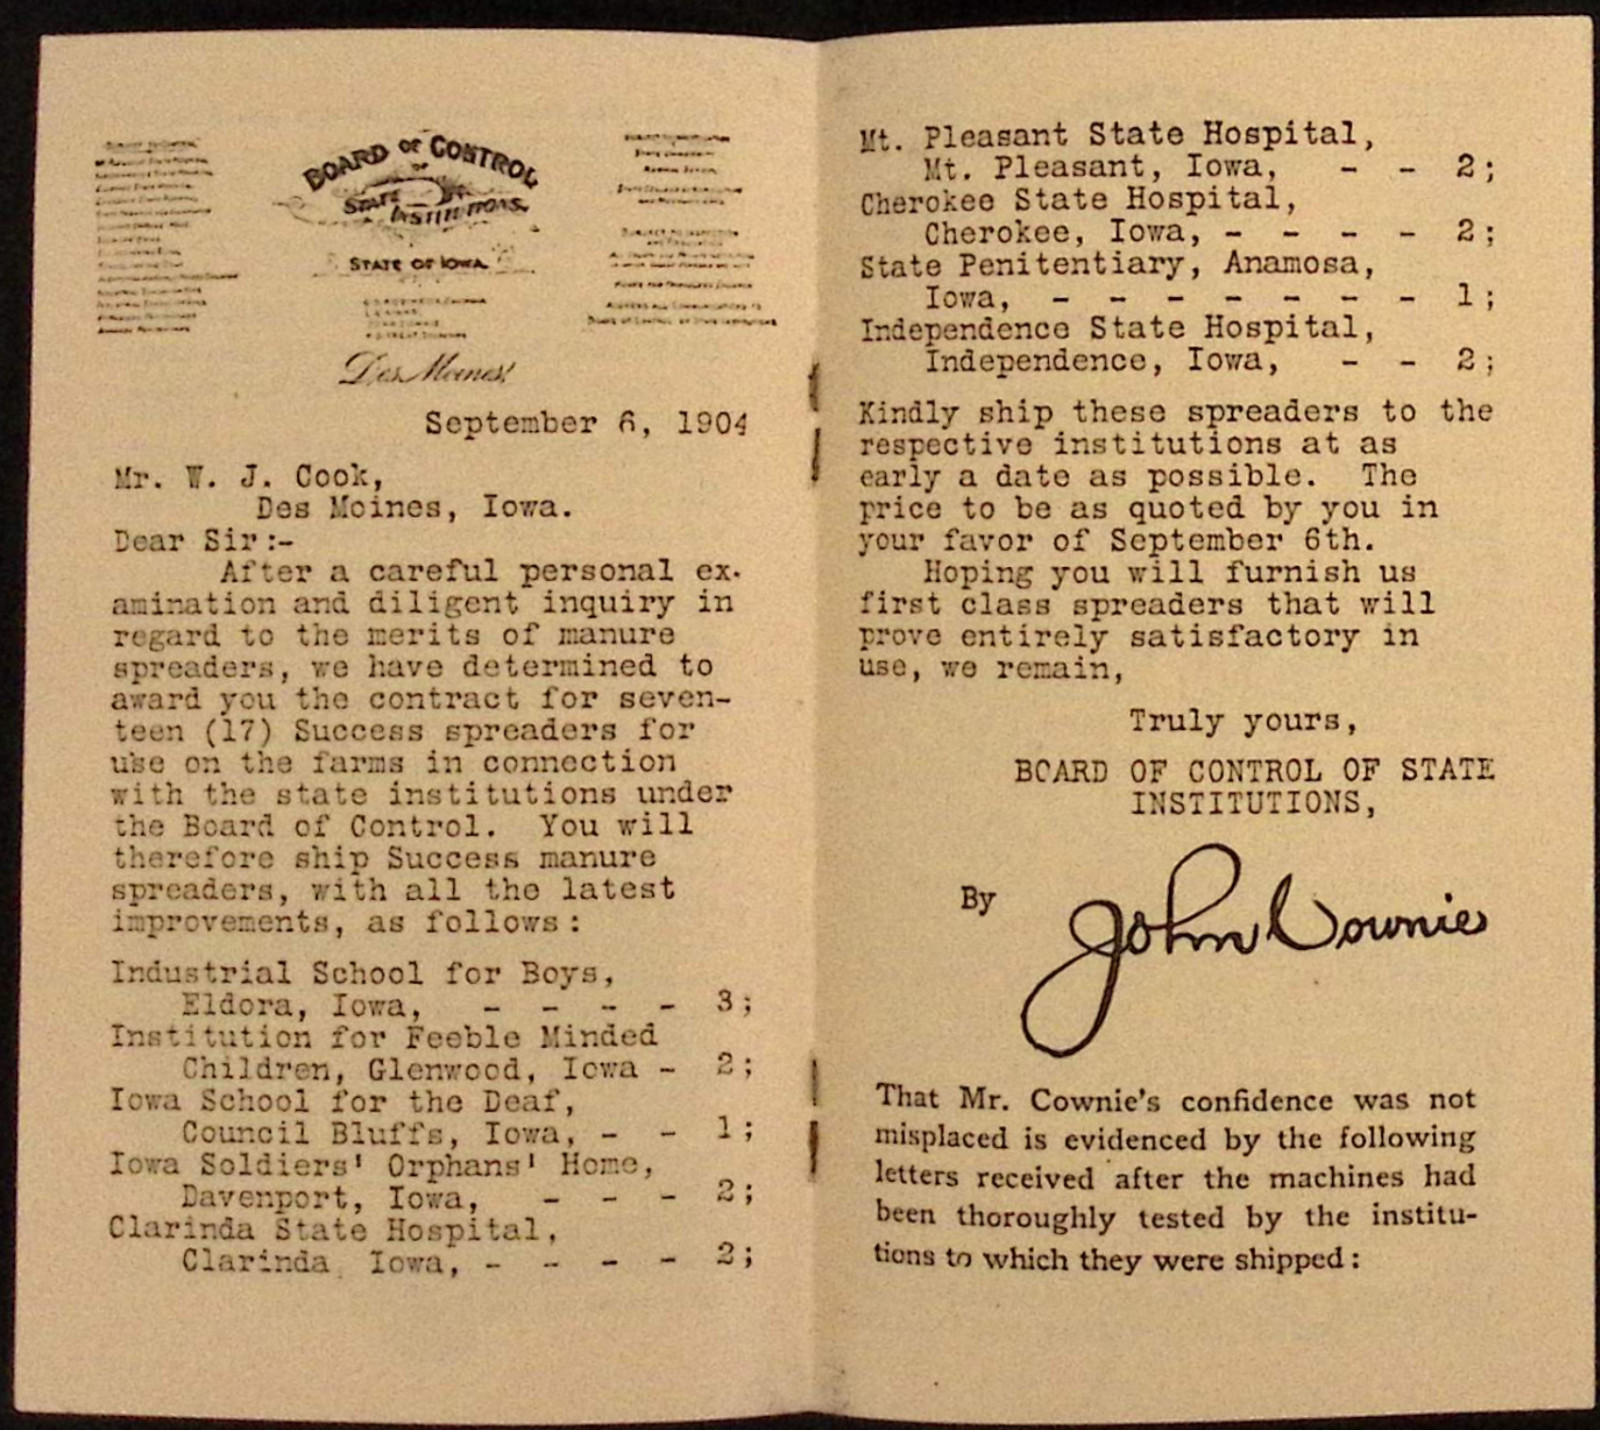 BOARD OF CONTROL
OF
STATE
INSTITUTIONS.
STATE OF IOWA.
Des Moines
September 6, 1904
Mr. W. J. Cook,
Des Moines, Iowa.
Dear Sir:-
After a careful personal ex-
amination and diligent inquiry in
regard to the merits of manure
spreaders, we have determined to
award you the contract for seven-
teen (17) Success spreaders for
use on the farms in connection
with the state institutions under
the Board of Control. You will
therefore ship Success manure
spreaders, with all the latest
improvements, as follows:
Industrial School for Boys,
Eldora, Iowa, - - - - 3;
Institution for Feeble Minded
Children, Glenwood, Iowa - 2;
Iowa School for the Deaf,
Council Bluffs, Iowa, - - 1;
Iowa Soldiers' Orphans' Home,
Davenport, Iowa, - - - 2;
Clarinda State Hospital,
Clarinda, Iowa, - - - - 2;
Mt. Pleasant State Hospital,
Mt. Pleasant, Iowa, - - 2;
Cherokee State Hospital,
Cherokee, Iowa, - - - - 2;
State Penitentiary, Anamosa,
Iowa, - - - - - - - 1;
Independence State Hospital,
Independence, Iowa, - - 2;
Kindly ship these spreaders to the
respective institutions at as
early a date as possible. The
price to be as quoted by you in
your favor of September 6th.
Hoping you will furnish us
first class spreaders that will
prove entirely satisfactory in
use, we remain,
Truly yours,
BOARD OF CONTROL OF STATE
INSTITUTIONS,
By John Cownie
That Mr. Cownie's confidence was not
misplaced is evidenced by the following
letters received after the machines had
been thoroughly tested by the institu-
tions to which they were shipped: